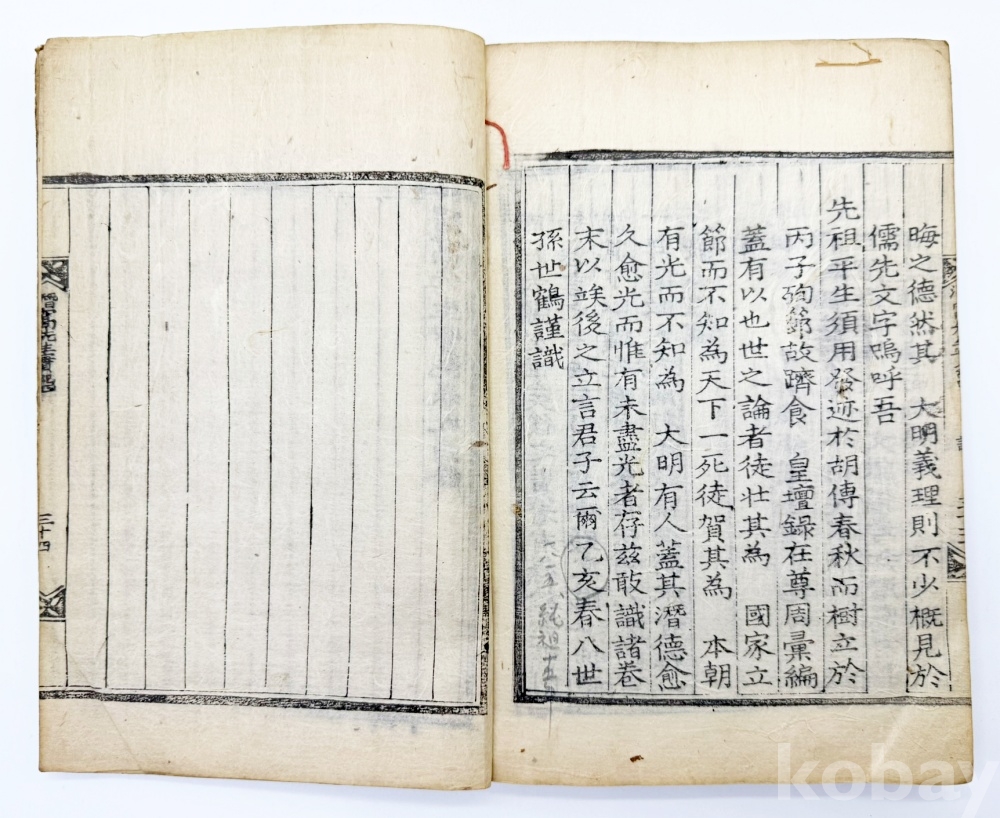 晦之德然其 大明義理則不少概見於
儒先文字嗚呼吾
先祖平生須用發迹於胡傳春秋而樹立於
丙子殉節故躋食 皇壇錄在尊周彙編
蓋有以也世之論者徒壯其為 國家立
節而不知為天下一死徒賀其為 本朝
有光而不知為 大明有人蓋其潛德愈
久愈光而惟有未盡光者存茲敢識諸卷
末以竢後之立言君子云爾乙亥春八世
八一五 純祖十五
孫世鶴謹識
窩先生實記
三十四
kobay